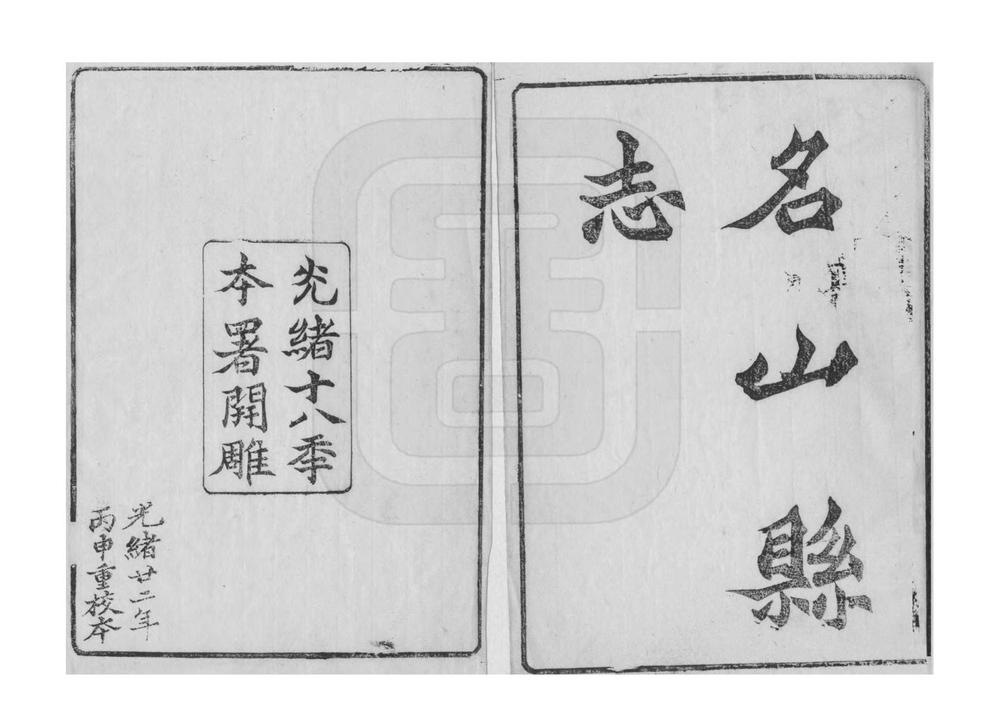 名山縣
志
光緒十八季
本署開雕
光緒廿二年
丙申重校本